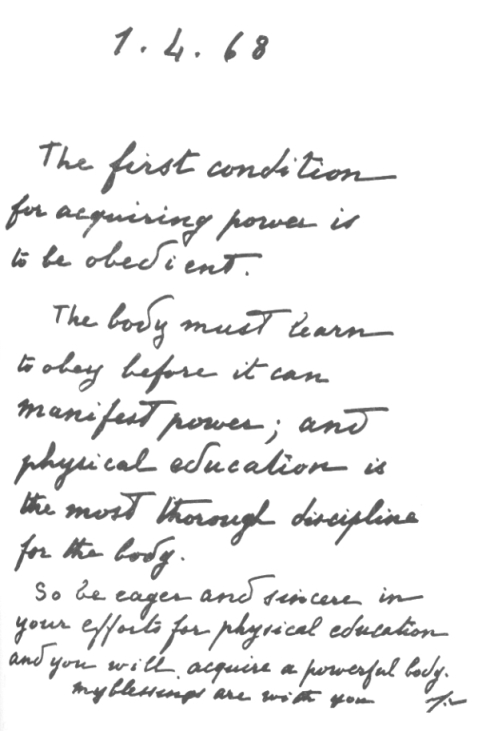 1.4.68
The first condition
for acquiring power is
to be obedient.
The body must learn
to obey before it can
manifest power; and
physical education is
the most thorough discipline
for the body.
So be eager and sincere in
your efforts for physical education
and you will acquire a powerful body.
my blessings are with you